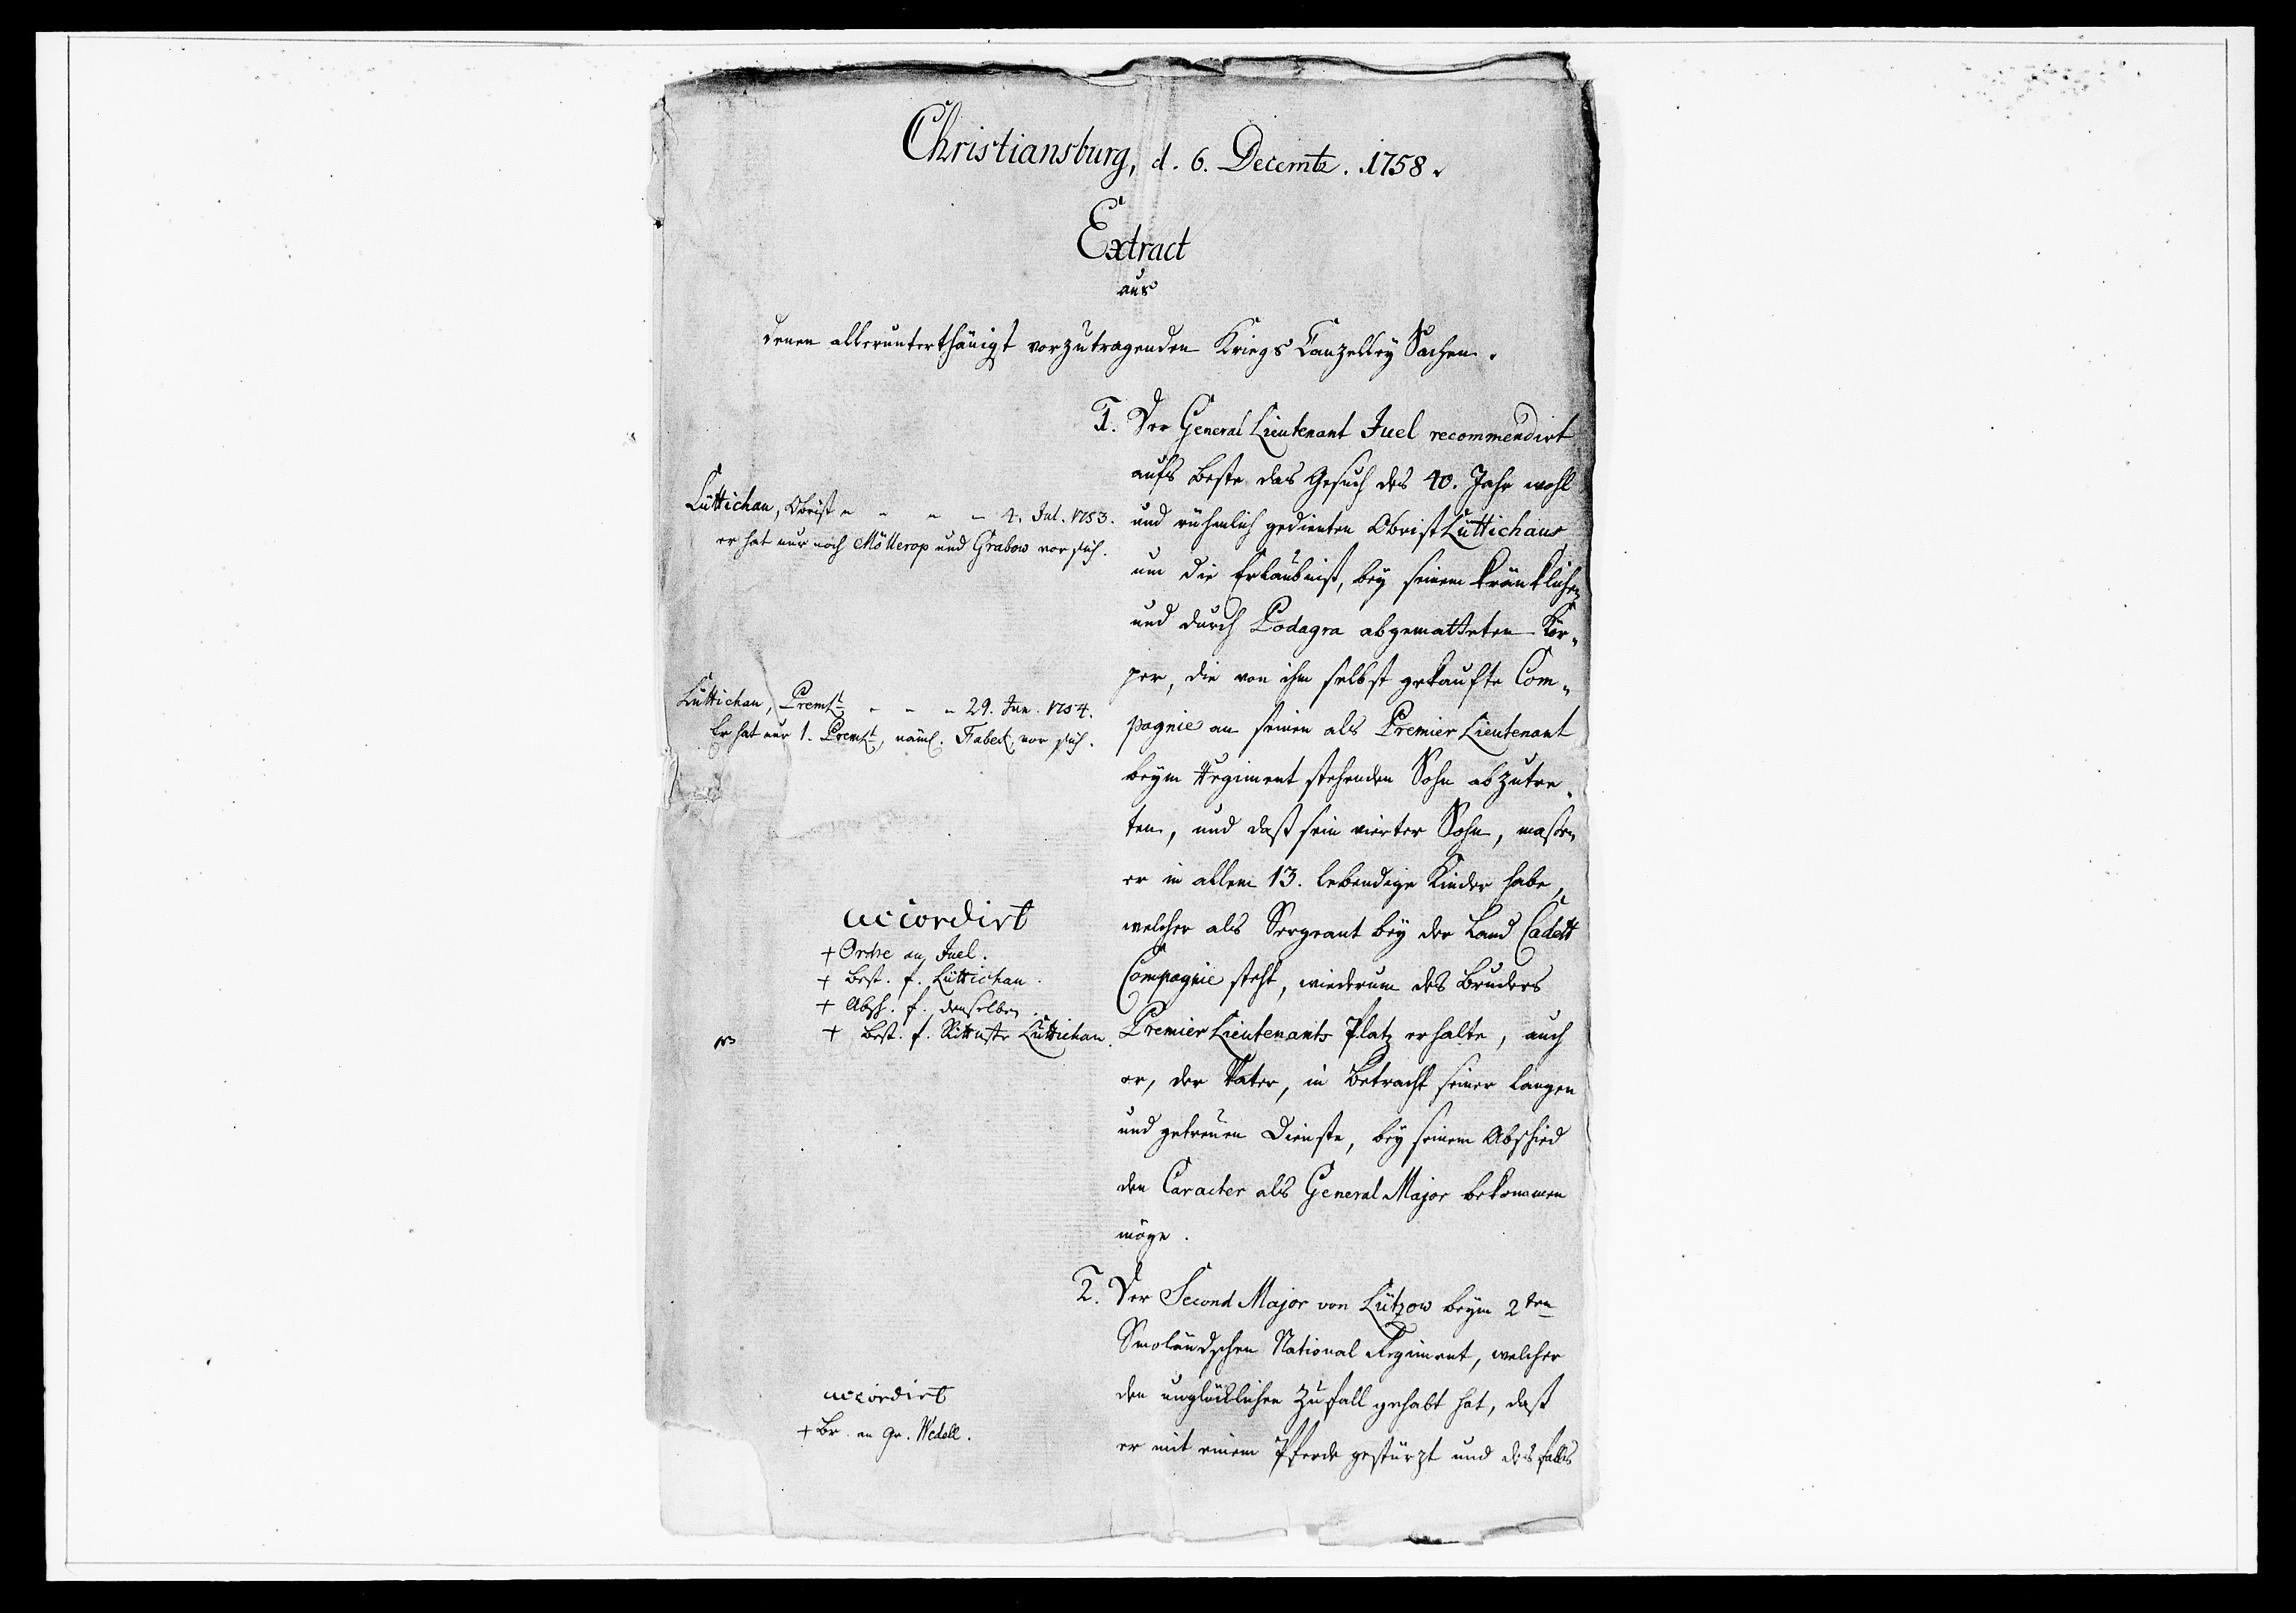 Christiansburg, d. 6. Decembr. 1758.
Extract
aus
denen allerunterthänigst vorzutragenden Kriegs Canzelley Sachen.
1. Der General Lieutenant Juel recommendirt
aufs beste das Gesuch des 40. Jahr wohl
und rühmlich gedienten Obrist Lüttichaus,
um die Erlaubniß, bey seinem kränklichen
und durch Podagra abgematteten Kör-
per, die von ihm selbst gekaufte Com-
pagnie an seinen als Premier Lieutenant
beym Regiment stehenden Sohn abzutre-
ten, und daß sein vierter Sohn, maßen
er in allem 13. lebendige Kinder habe,
welcher als Sergeant bey der Land Cadett
Compagnie steht, wiederum des Bruders
Premier Lieutenants Platz erhalte, auch
er, der Vater, in Betracht seiner langen
und getreuen Dienste, bey seinem Abschied
den Caracter als General Major bekommen
möge.
Lüttichau, Obrist - - - - 4. Jul. 1753.
er hat nur noch Möllerop und Grabow vor sich.
Lüttichau, Premlt. - - - 29. Jan. 1754.
Er hat nur 1. Premlt., näml. vor sich.
accordirt
+ Ordre an Juel.
+ Best. f. Lüttichau.
+ Absch. f. denselben.
+ Best. f. Rittmstr Lüttichau.
2. Der Second Major von Lützow beym 2ten
Smoländschen National Regiment, welcher
den unglücklichen Zufall gehabt hat, daß
er mit einem Pferde gestürzt und desfalls
accordirt
+ Br. an Gr. Wedell.